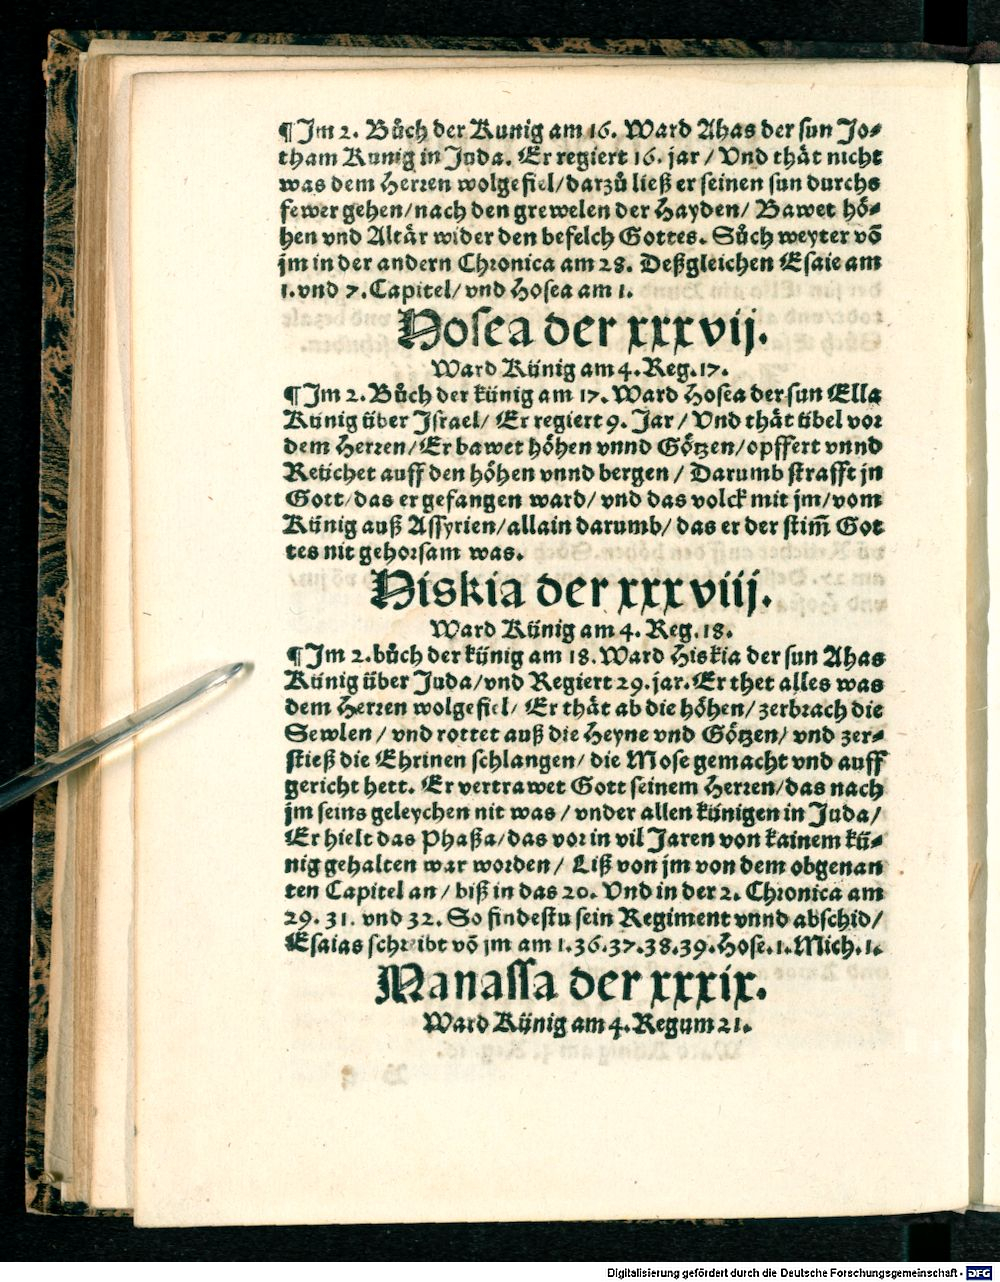 ¶Im 2. Bůch der Kunig am 16. Ward Ahas der sun Jo⸗
tham Kunig in Juda. Er regiert 16. jar / Vnd thät nicht
was dem Herren wolgefiel/darzů ließ er seinen sun durchs
fewer gehen/nach den grewelen der Hayden/ Bawet hö⸗
hen vnd Altär wider den befelch Gottes. Sůch weyter võ
jm in der andern Chronica am 28. Deßgleichen Esaie am
1.vnd 7.Capitel/ vnd Hosea am 1.
Hosea der xxxvij.
Ward Künig am 4.Reg.17.
¶Im 2.Bůch der künig am 17.Ward Hosea der sun Ella
Künig über Israel/ Er regiert 9. Jar / Vnd thät übel vor
dem Herren/Er bawet höhen vnnd Götzen/opffert vnnd
Reüchet auff den höhen vnnd bergen / Darumb strafft jn
Gott/das er gefangen ward/ vnd das volck mit jm/vom
Künig auß Assyrien/allain darumb/ das er der stim̃ Got
tes nit gehorsam was.
Hiskia der xxxviij.
Ward Künig am 4. Reg.18.
¶Im 2.bůch der künig am 18.Ward Hiskia der sun Ahas
Künig über Juda/vnd Regiert 29.jar.Er thet alles was
dem Herren wolgefiel/ Er thät ab die höhen/zerbrach die
Sewlen / vnd rottet auß die Heyne vnd Götzen/ vnd zer⸗
stieß die Ehrinen schlangen/ die Mose gemacht vnd auff
gericht hett. Er vertrawet Gott seinem Herren/das nach
jm seins geleychen nit was / vnder allen künigen in Juda/
Er hielt das Phaßa/das vor in vil Jaren von kainem kü⸗
nig gehalten war worden/ Liß von jm von dem obgenan
ten Capitel an/ biß in das 20. Vnd in der 2. Chronica am
29. 31. vnd 32. So findestu sein Regiment vnnd abschid/
Esaias schreibt võ jm am 1.36.37.38.39.Hose.1.Mich.1.
Manassa der xxxix.
Ward Künig am 4.Regum 21.
Digitalisierung gefördert durch die Deutsche Forschungsgemeinschaft - DFG